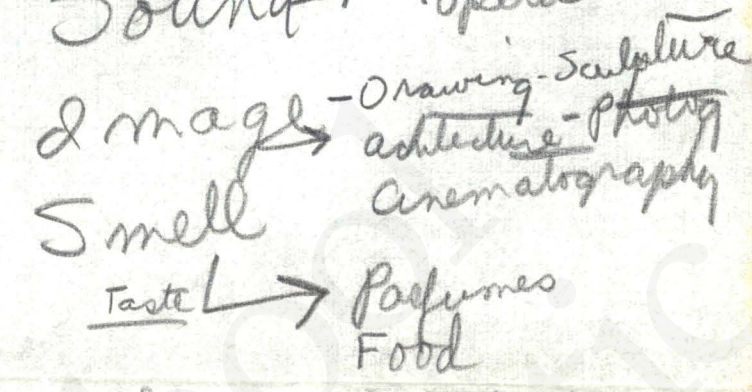 Sound
Image - Drawing - Sculpture
achitecture - Photog
Cinematography
Smell
Taste Parfumes
Food